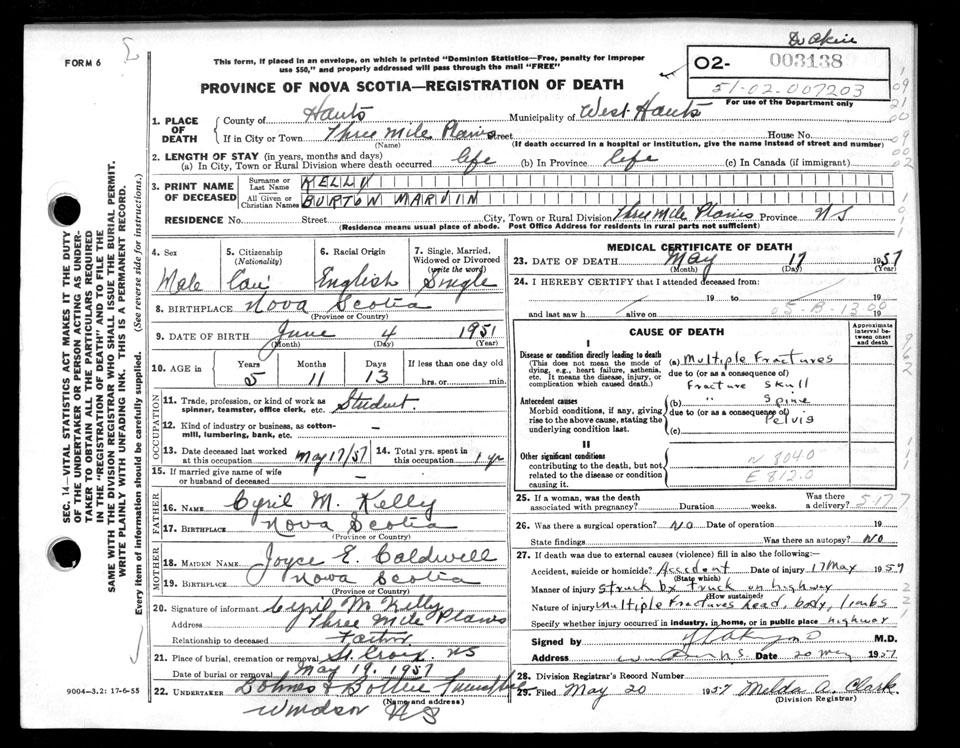 FORM 6
This form, if placed in an envelope, on which is printed "Dominion Statistics—Free, penalty for improper
use $50," and properly addressed will pass through the mail "FREE"
PROVINCE OF NOVA SCOTIA—REGISTRATION OF DEATH
02- 003138
51-02-007203
For use of the Department only
1. PLACE OF DEATH
County of Hants Municipality of West Hants
If in City or Town Three Mile Plains Street House No.
(Name) (If death occurred in a hospital or institution, give the name instead of street and number)
2. LENGTH OF STAY (in years, months and days)
(a) In City, Town or Rural Division where death occurred life (b) In Province life (c) In Canada (if immigrant)
3. PRINT NAME OF DECEASED
Surname or Last Name KELLY
All Given or Christian Names BURTON MARVIN
RESIDENCE No. Street City, Town or Rural Division Three Mile Plains Province NS
(Residence means usual place of abode. Post Office Address for residents in rural parts not sufficient)
4. Sex
Male
5. Citizenship
(Nationality)
Can
6. Racial Origin
English
7. Single, Married,
Widowed or Divorced
(write the word)
Single
8. BIRTHPLACE Nova Scotia
(Province or Country)
9. DATE OF BIRTH June 4 1951
(Month) (Day) (Year)
10. AGE in Years Months Days If less than one day old
5 11 13 hrs. or min.
OCCUPATION
11. Trade, profession, or kind of work as
spinner, teamster, office clerk, etc. Student.
12. Kind of industry or business, as cotton-
mill, lumbering, bank, etc. —
13. Date deceased last worked
at this occupation May 17/57
14. Total yrs. spent in
this occupation 1 yr
15. If married give name of wife
or husband of deceased —
FATHER
16. Name Cyril M. Kelly
17. Birthplace Nova Scotia
(Province or Country)
MOTHER
18. Maiden Name Joyce E. Caldwell
19. Birthplace Nova Scotia
(Province or Country)
20. Signature of informant Cyril M Kelly
Address Three Mile Plains
Relationship to deceased Father
21. Place of burial, cremation or removal St. Croix. NS
Date of burial or removal May 19. 1957
22. UNDERTAKER
(Name and address)
Windsor NS
9004-3.2: 17-6-55
SEC. 14—VITAL STATISTICS ACT MAKES IT THE DUTY
OF THE UNDERTAKER OR PERSON ACTING AS UNDER-
TAKER TO OBTAIN ALL THE PARTICULARS REQUIRED
IN THE "REGISTRATION OF DEATH" AND TO FILE THE
SAME WITH THE DIVISION REGISTRAR WHO SHALL ISSUE THE BURIAL PERMIT.
WRITE PLAINLY WITH UNFADING INK. THIS IS A PERMANENT RECORD.
Every item of information should be carefully supplied. (See reverse side for instructions.)
MEDICAL CERTIFICATE OF DEATH
23. DATE OF DEATH May 17 1957
(Month) (Day) (Year)
24. I HEREBY CERTIFY that I attended deceased from:
19 to 19
and last saw h alive on 19
CAUSE OF DEATH
Approximate
interval be-
tween onset
and death
I
Disease or condition directly leading to death
(This does not mean the mode of
dying, e.g., heart failure, asthenia,
etc. It means the disease, injury, or
complication which caused death.)
(a) Multiple Fractures
due to (or as a consequence of)
Fracture Skull
Antecedent causes
Morbid conditions, if any, giving
rise to the above cause, stating the
underlying condition last.
(b) " Spine
due to (or as a consequence of)
Pelvis
(c)
II
Other significant conditions
contributing to the death, but not
related to the disease or condition
causing it.
N 8040
E 812.0
25. If a woman, was the death
associated with pregnancy? Duration weeks. Was there
a delivery?
26. Was there a surgical operation? NO Date of operation 19
State findings Was there an autopsy? NO
27. If death was due to external causes (violence) fill in also the following:—
Accident, suicide or homicide? Accident Date of injury 17 May 1957
(State which)
Manner of injury Struck by truck on highway
(How sustained)
Nature of injury multiple fractures head, body, limbs
Specify whether injury occurred in industry, in home, or in public place highway
Signed by M.D.
Address N.S. Date 20 May 1957
28. Division Registrar's Record Number
29. Filed May 20 1957 Melda A. Clark
(Division Registrar)